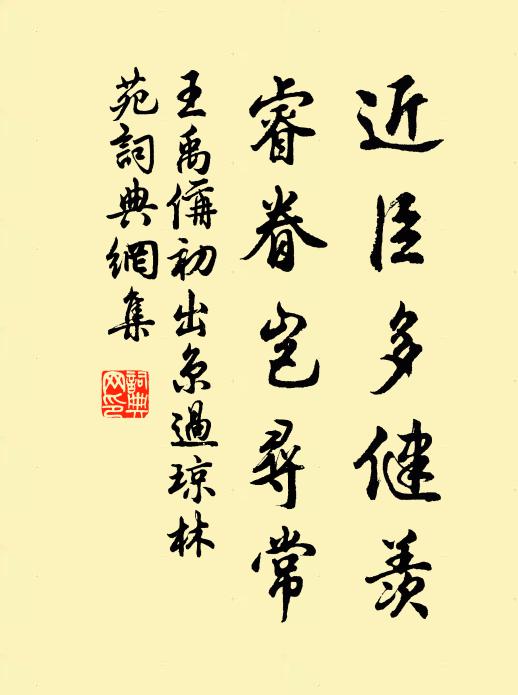 近臣多健羡
睿眷岂尋常
王禹偁初出京過琼林
苑詞典網集
詞典
网印